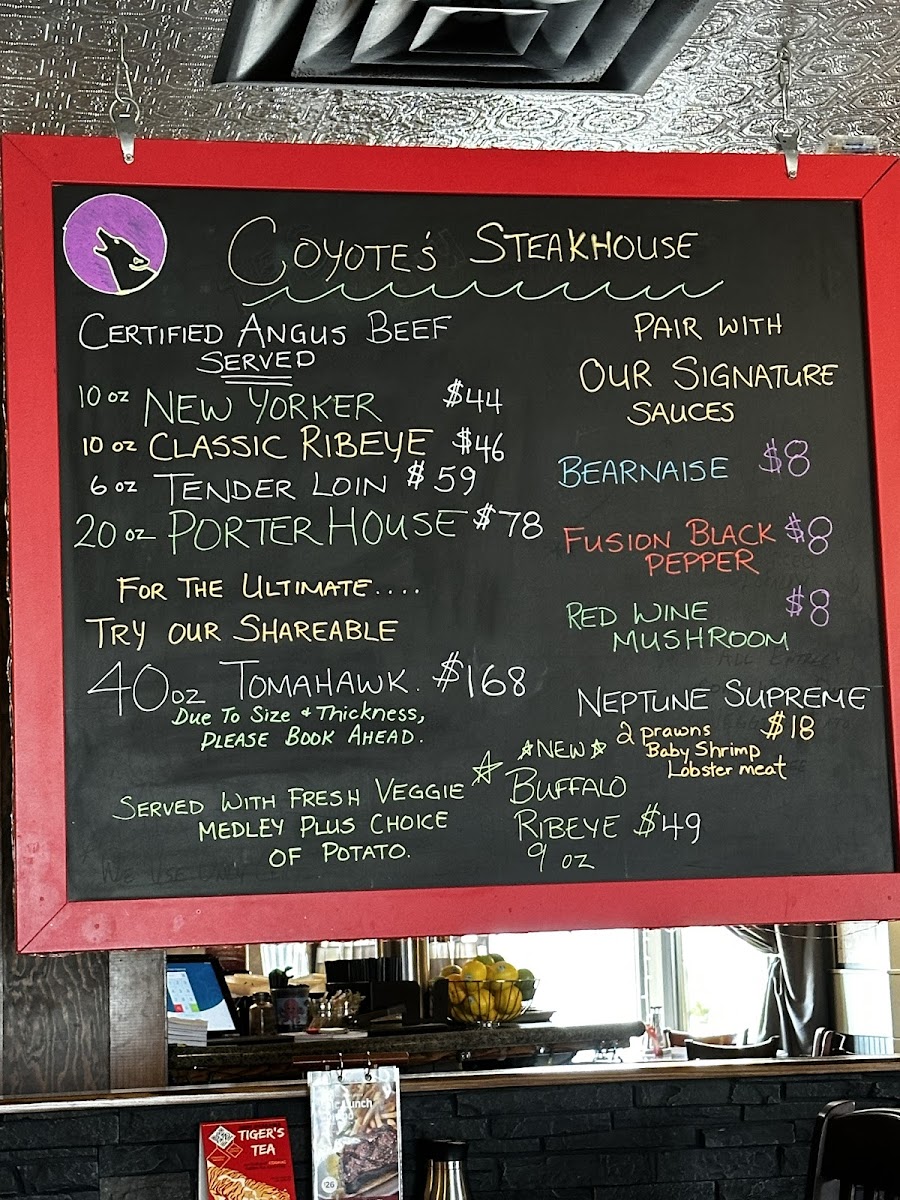 COYOTE'S STEAKHOUSE
CERTIFIED ANGUS BEEF
SERVED
10 OZ NEW YORKER $44
10 OZ CLASSIC RIBEYE $46
6 OZ TENDER LOIN $59
20 OZ PORTERHOUSE $78
FOR THE ULTIMATE....
TRY OUR SHAREABLE
40 OZ TOMAHAWK. $168
Due To Size & Thickness,
PLEASE BOOK AHEAD.
SERVED WITH FRESH VEGGIE
MEDLEY PLUS CHOICE
OF POTATO.
PAIR WITH
OUR SIGNATURE
SAUCES
BEARNAISE $8
FUSION BLACK $8
PEPPER
RED WINE $8
MUSHROOM
NEPTUNE SUPREME
2 prawns $18
Baby Shrimp
Lobster meat
NEW
BUFFALO
RIBEYE $49
9 OZ
WE USE ONLY
TIGER'S
TEA
Lunch
$26